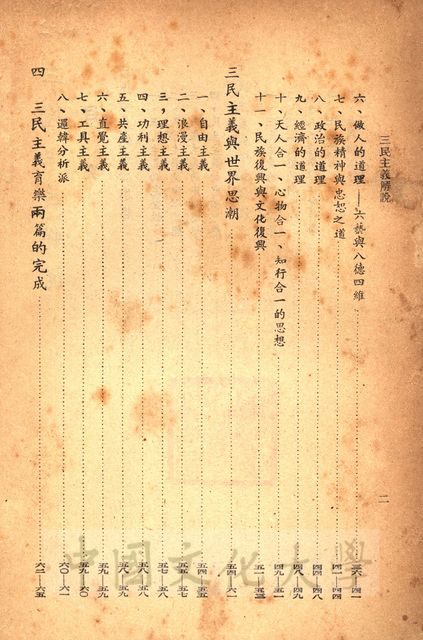 三民主義解說
二
六、做人的道理——六藝與八德四維……三六—四一
七、民族精神與忠恕之道……四一—四四
八、政治的道理……四四—四八
九、經濟的道理
十、天人合一、心物合一、知行合一的思想……四九—五一
十一、民族復興與文化復興……五一—五三
三 三民主義與世界思潮……五四—六一
一、自由主義……五四—五五
二、浪漫主義……五五—五七
三、理想主義……五七—五八
四、功利主義
五、共產主義
六、直覺主義
七、工具主義……五九—六〇
八、邏輯分析派……六〇—六一
四 三民主義育樂兩篇的完成……六二—六五
中國文化大學